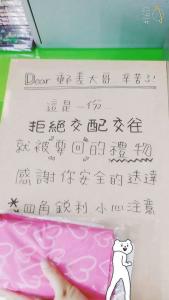 Dear 郵差大哥 辛苦了!
這是一份
拒絕交配交往
就被要回的禮物
感謝你安全的送達
※四角銳利 小心注意